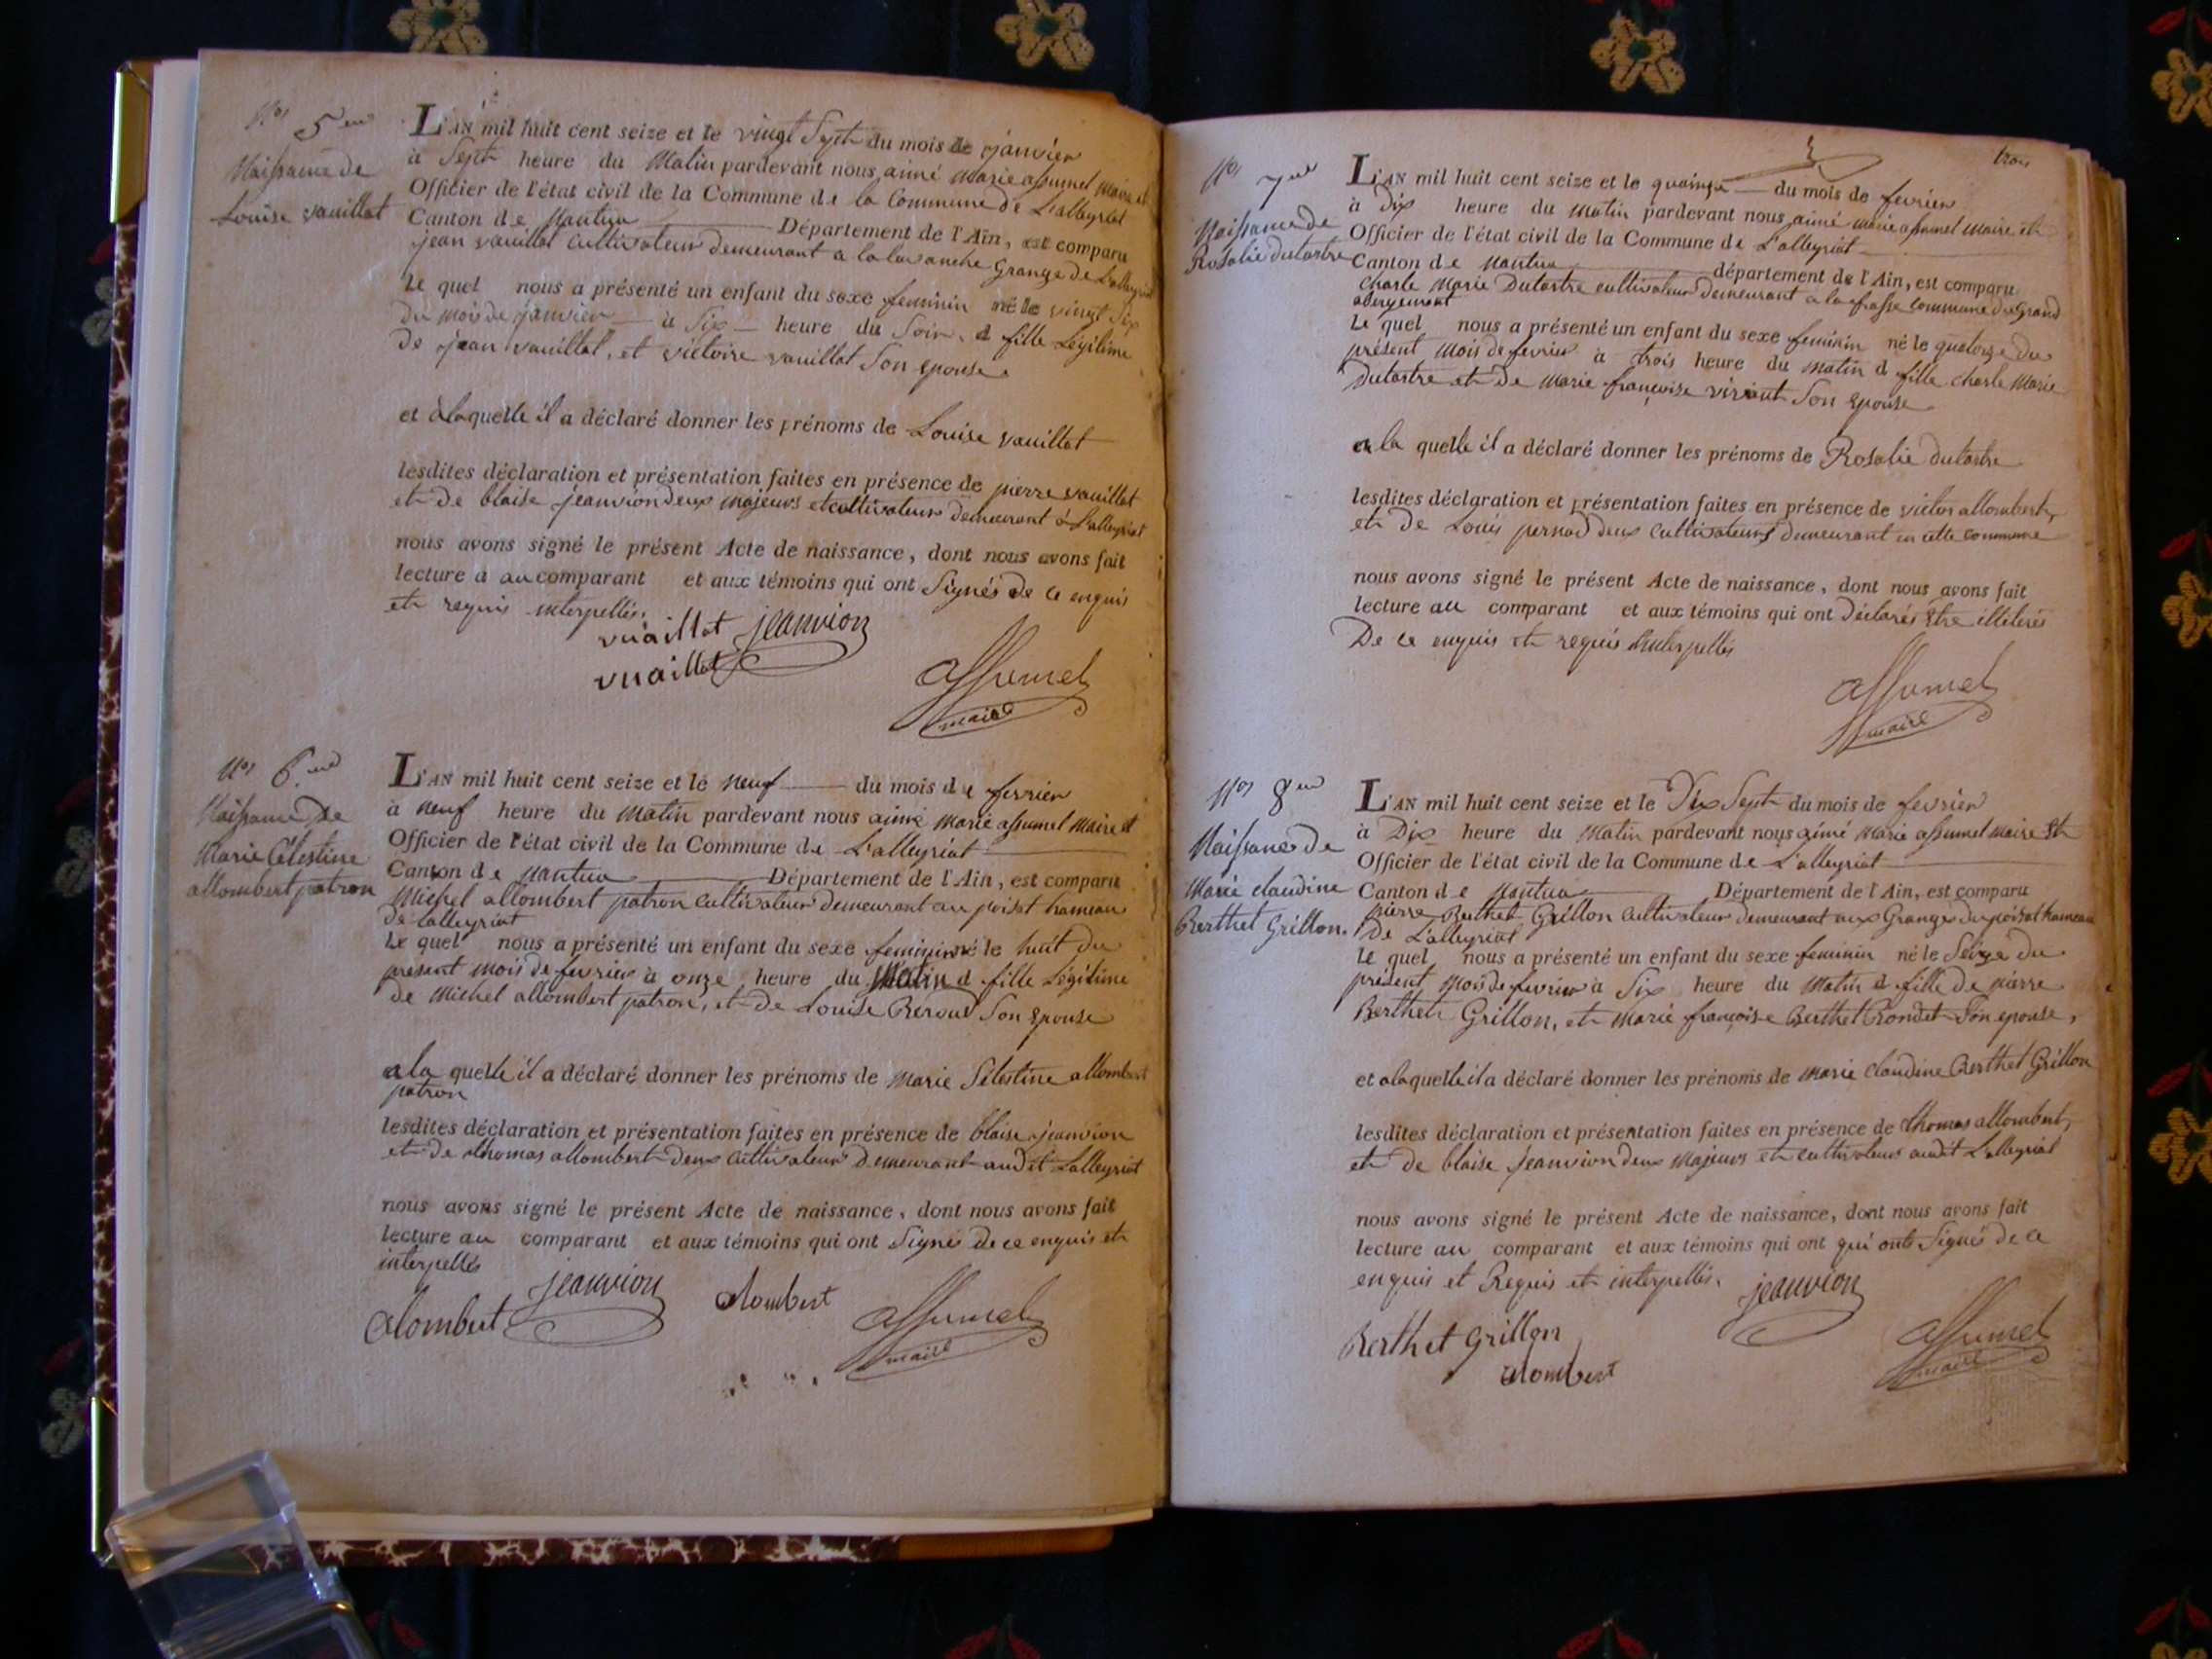 Nos 5me
Naissance de
Louise vuaillat
L'AN mil huit cent seize et le vingt Sept du mois de janvier
à Sept heure du Matin pardevant nous aimé marie assumel maire et
Officier de l'état civil de la Commune de la Commune de Lalleyriat
Canton de Nantua Département de l'Ain, est comparu
jean vuaillat cultivateur demeurant a la lavanche Grange de Lalleyriat
Le quel nous a présenté un enfant du sexe feminin né le vingt Six
du mois de janvier à Six heure du Soir, d fille Légitime
de jean vuaillat, et victoire vuaillat Son epouse
et à laquelle il a déclaré donner les prénoms de Louise vuaillat
lesdites déclaration et présentation faites en présence de pierre vuaillat
et de blaise jeanvion deux majeurs et cultivateurs demeurant à Lalleyriat
nous avons signé le présent Acte de naissance, dont nous avons fait
lecture a au comparant et aux témoins qui ont Signés de ce enquis
et requis interpellés.
vuaillat jeanvion
vuaillat
assumel
maire
Nos 6me
Naissance de
Marie Célestine
allombert patron
L'AN mil huit cent seize et le neuf du mois de fevrier
à neuf heure du Matin pardevant nous aimé marie assumel maire et
Officier de l'état civil de la Commune de Lalleyriat
Canton de Nantua Département de l'Ain, est comparu
Michel allombert patron cultivateur demeurant au poisat hameau
de Lalleyriat
Le quel nous a présenté un enfant du sexe feminin né le huit du
présent mois de fevrier à onze heure du Matin d fille Légitime
de Michel allombert patron, et de Louise Son epouse
a la quelle il a déclaré donner les prénoms de Marie Sélestine allombert
patron
lesdites déclaration et présentation faites en présence de blaise jeanvion
et de thomas allombert deux cultivateurs demeurant audit Lalleyriat
nous avons signé le présent Acte de naissance, dont nous avons fait
lecture au comparant et aux témoins qui ont Signés de ce enquis et
interpellés
alombert jeanvion alombert assumel
maire
trois
Nos 7me
Naissance de
Rosalie dutartre
L'AN mil huit cent seize et le quainze du mois de fevrier
à Dix heure du Matin pardevant nous aimé marie assumel maire et
Officier de l'état civil de la Commune de Lalleyriat
Canton de Nantua département de l'Ain, est comparu
Charle Marie Dutartre cultivateur demeurant a la frasse commune du Grand
abergement
Le quel nous a présenté un enfant du sexe feminin né le quatorze du
présent Mois de fevrier à trois heure du Matin d fille charle Marie
Dutartre et de Marie françoise Son epouse
a la quelle il a déclaré donner les prénoms de Rosalie dutartre
lesdites déclaration et présentation faites en présence de victor allombert,
et de Louis pernod deux cultivateurs demeurant en cette commune
nous avons signé le présent Acte de naissance, dont nous avons fait
lecture au comparant et aux témoins qui ont déclarés être illiterés
De ce enquis et requis interpellés
assumel
maire
Nos 8me
Naissance de
Marie claudine
Berthet Grillon.
L'AN mil huit cent seize et le Dix Sept du mois de fevrier
à Dix heure du Matin pardevant nous aimé Marie assumel maire et
Officier de l'état civil de la Commune de Lalleyriat
Canton de Nantua Département de l'Ain, est comparu
pierre Berthet Grillon cultivateur demeurant aux Granges du poisat hameau
de Lalleyriat
Le quel nous a présenté un enfant du sexe feminin né le Seize du
présent Mois de fevrier à Six heure du Matin d fille de pierre
Berthet Grillon, et Marie françoise Berthet Rondet Son epouse,
et a laquelle il a déclaré donner les prénoms de Marie Claudine Berthet Grillon
lesdites déclaration et présentation faites en présence de thomas allombert,
et de blaise jeanvion deux Majeurs et cultivateurs audit Lalleyriat
nous avons signé le présent Acte de naissance, dont nous avons fait
lecture au comparant et aux témoins qui ont qui ont Signés de ce
enquis et Requis et interpellés. jeanvion
Berthet Grillon
alombert
assumel
maire